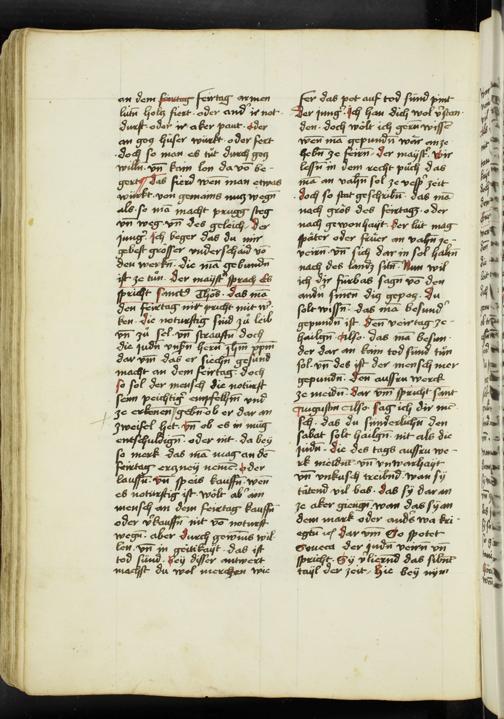 an dem feirtag armen
lutn holtz fiert · oder and' ir not
durft · oder ir aker paut · oder
an gog hüser würkt · oder fert
doch so man es tüt durch gog
willn · vn kain lon da vo be
gert das fierd wen man etwas
würkt · von gemains nutz wegn
als · so ma macht prugg steg
vn weg · vn des geleich · der
jung' · Ich beger das du mir
gebest grosser vnderschaid vo
den werkn · die ma gebundn
ist ze tun · der mayst' sprach Es
spricht sanct' Thos · das ma
den feirtag nit pricht mit w'
ken · die noturftig sind zu leib
vn zu sel · vn straafftn doch
die judn vnsn hern Jhm xpm
dar vm das er siechn gesund
macht an dem feirtag · doch
so sol der mensch die noturft
senn peichtig' empfelhn vnd
ze erkenen gebn ob er dar an
zweifel het · vn ob es in mug
entschuldign · oder nit · da bey
so merk das ma mag an de
feirtag erzney nemen · oder
kauffn · vn speis kauffn · wen
es noturftig ist wolt ab' ain
mensch an dem feirtag kauffn
oder v'kauffn nit vo noturft
wegn · aber durch gewins wil
len · vn in geitikayt · das ist
tod sund · bey diser antwert
machst du wol merchen wie
fer das pot auf tod sünd pint
der jung' · Ich han dich wol v'stan
den · doch wölt ich gern wissn
wen ma gepundn wär an ze
hebn ze feirn · der mayst' · wir
lessn in dem recht püch das
ma an vahn sol ze vesp' zeit
doch so stat geschribn · das ma
nach gros des feirtags · oder
nach gewonhayt · der lüt mag
später oder früer an vahn ze
veirn · vn sich dar in sol haltn
nach des landz sitn · Nun wil
ich dir fürbas sagn vo den
andn sinen dig gepog · Du
solt wissn · das ma besund'
gepundn ist den veirtag ze
hailgn · das ma besun
der dar an kain tod sünd tün
sol · vn des ist der mensch mer
gepundn · den aussru werk
ze meidn · dar vm spricht sant
Augustin also sag ich dir me
sch · das du sunderlichn den
sabat solt hailgn · nit als die
judn · die des tags aussru we
rk meident vn vnwarhayt
vn vnkusch treibnd · wan sy
tätend vil bas · das sy dar an
ze aker giengn wan das sy an
dem mark oder ands wa kri
egtn · dar vm So spotet
Seneca der judn veirn vn
spricht · Sy v'lierend das sibnt
tayl der zeit · Hie bey nym